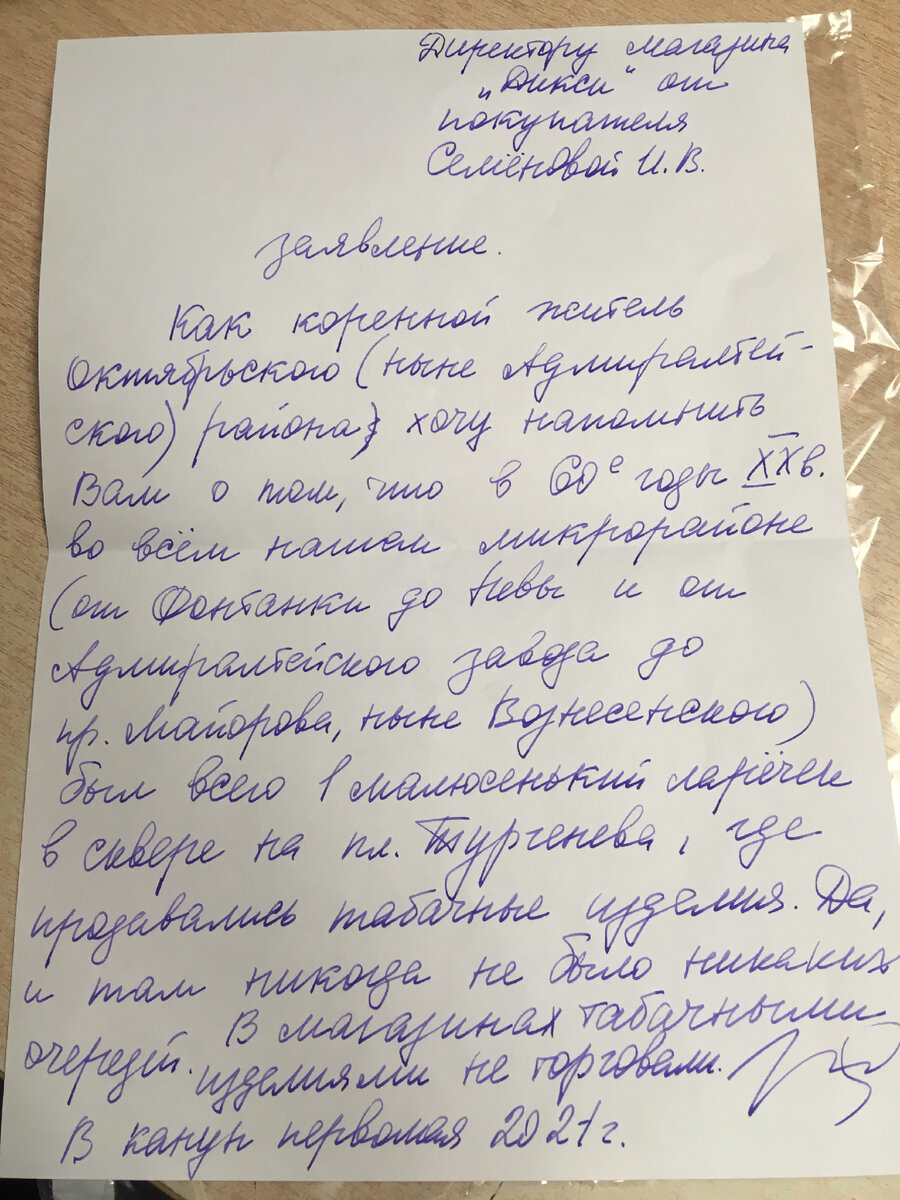 Директору магазина
„Дикси" от
покупателя
Семёновой И.В.
заявление.
Как коренной житель
Октябрьского (ныне Адмиралтей-
ского) района, хочу напомнить
Вам о том, что в 60е годы XXв.
во всём нашем микрорайоне
(от Фонтанки до Невы и от
Адмиралтейского завода до
пр. Майорова, ныне Вознесенского)
был всего 1 малюсенький ларёчек
в сквере на пл. Тургенева, где
продавались табачные изделия. Да,
и там никогда не было никаких
очередей. В магазинах табачными
изделиями не торговали.
В канун первомая 2021г.